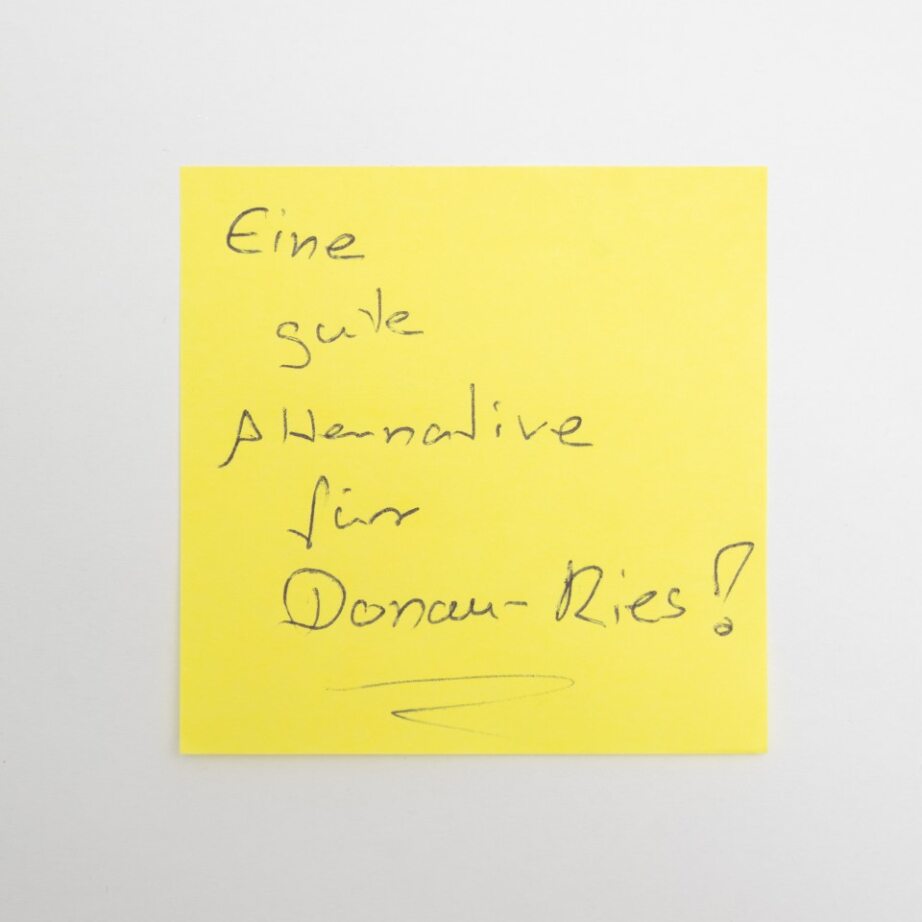 Eine
gute
Alternative
für
Donau-Ries!